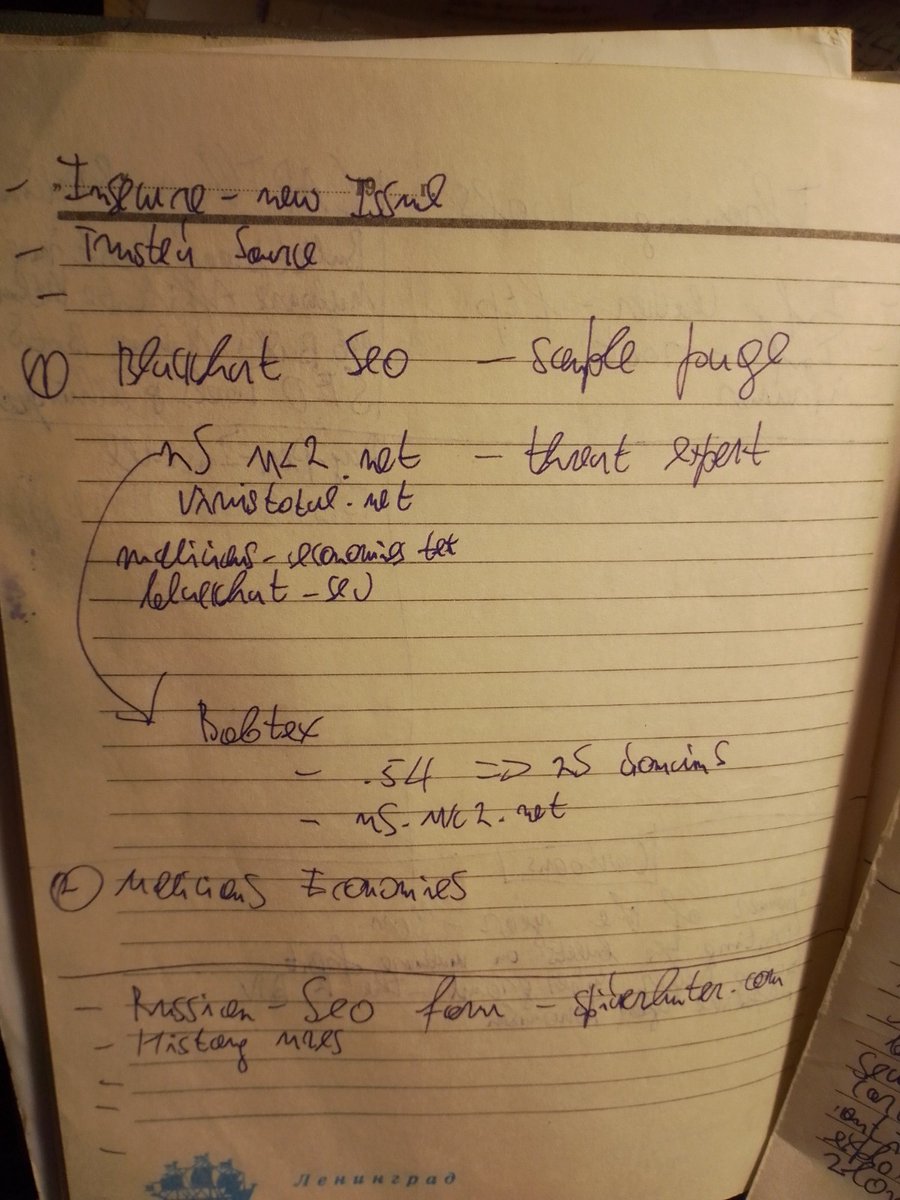 - Insecure - new Issue
- Trusted Source
-
① Blackhat SEO - sample page
ns uc2.net - threat expert
virustotal.net
malicious - economies txt
blackhat - seo
Bobtex
- .54 => 25 domains
- ns.uc2.net
② Malicious Economies
- Russian - SEO farm - spiderhunter.com
- History
-
-
-
Ленинград